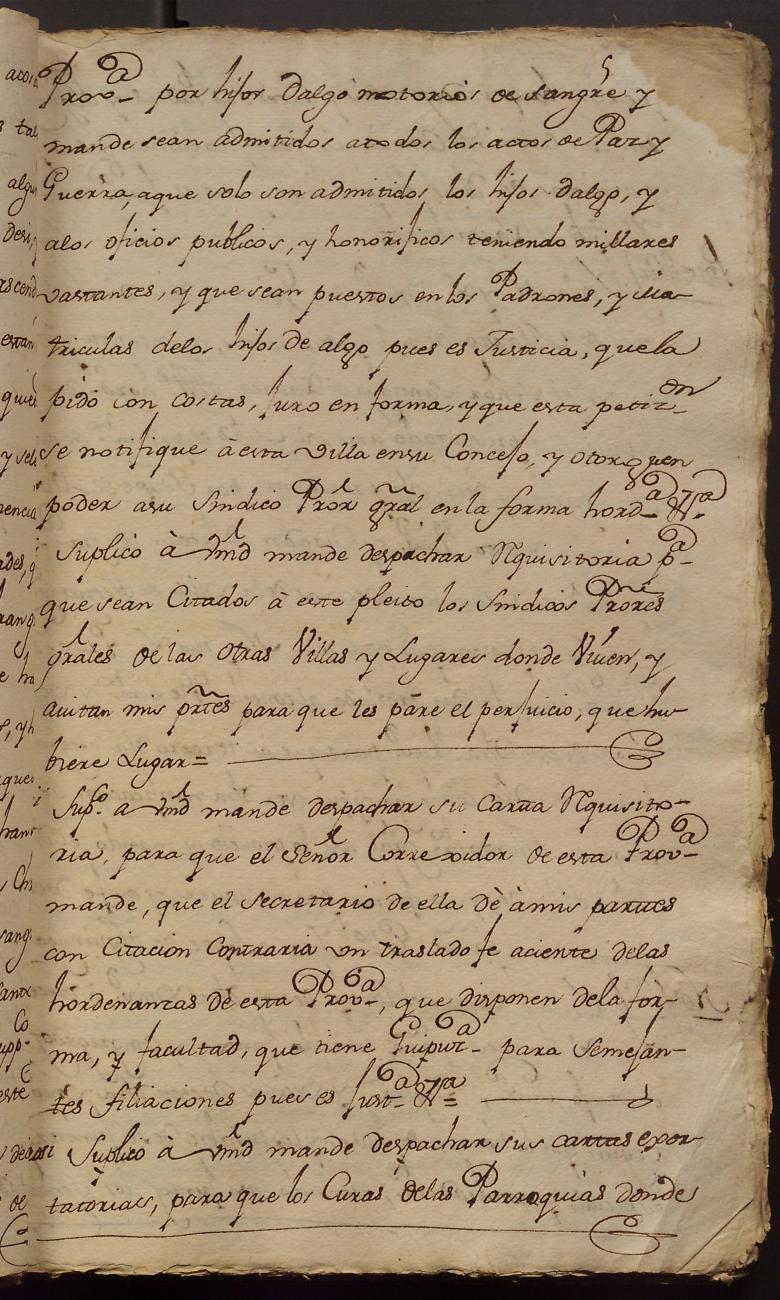 5
Prov.ª por hijos dalgo notorios de sangre y
mande sean admitidos atodos los actos de Paz y
Guerra, aque solo son admitidos los hijos dalgo, y
alos oficios publicos, y honorificos teniendo millares
vastantes, y que sean puestos en los Padrones, y Ma-
triculas delos hijos de algo pues es Justicia, que la
pido con costas, Juro en forma, y que esta petiz.on
se notifique à esta Villa ensu Concejo, y otorguen
poder asu Sindico Pror gral en la forma hord.ª &.ª
Suplico à Vmd mande despachar Rquisitoria p.ª
que sean Citados à este pleito los Sindicos Prores
grales de las otras Villas y Lugares donde Viven, y
avitan mis prtes para que les pàre el perjuicio, que hu-
biere Lugar =
Sup.co a Vmd mande despachar su Carta Rquisito-
ria, para que el Señor Correxidor de esta Prov.ª
mande, que el Secretario de ella dè à mis partes
con Citacion Contraria un traslado fe aciente delas
hordenanzas de esta Prov.ª, que disponen dela for-
ma, y facultad, que tiene Guipuz.ª para Semejan-
tes filiaciones pues es Just.ª &.ª
Suplico à Vmd mande despachar sus cartas exor-
tatorias, para que los Curas delas Parroquias donde